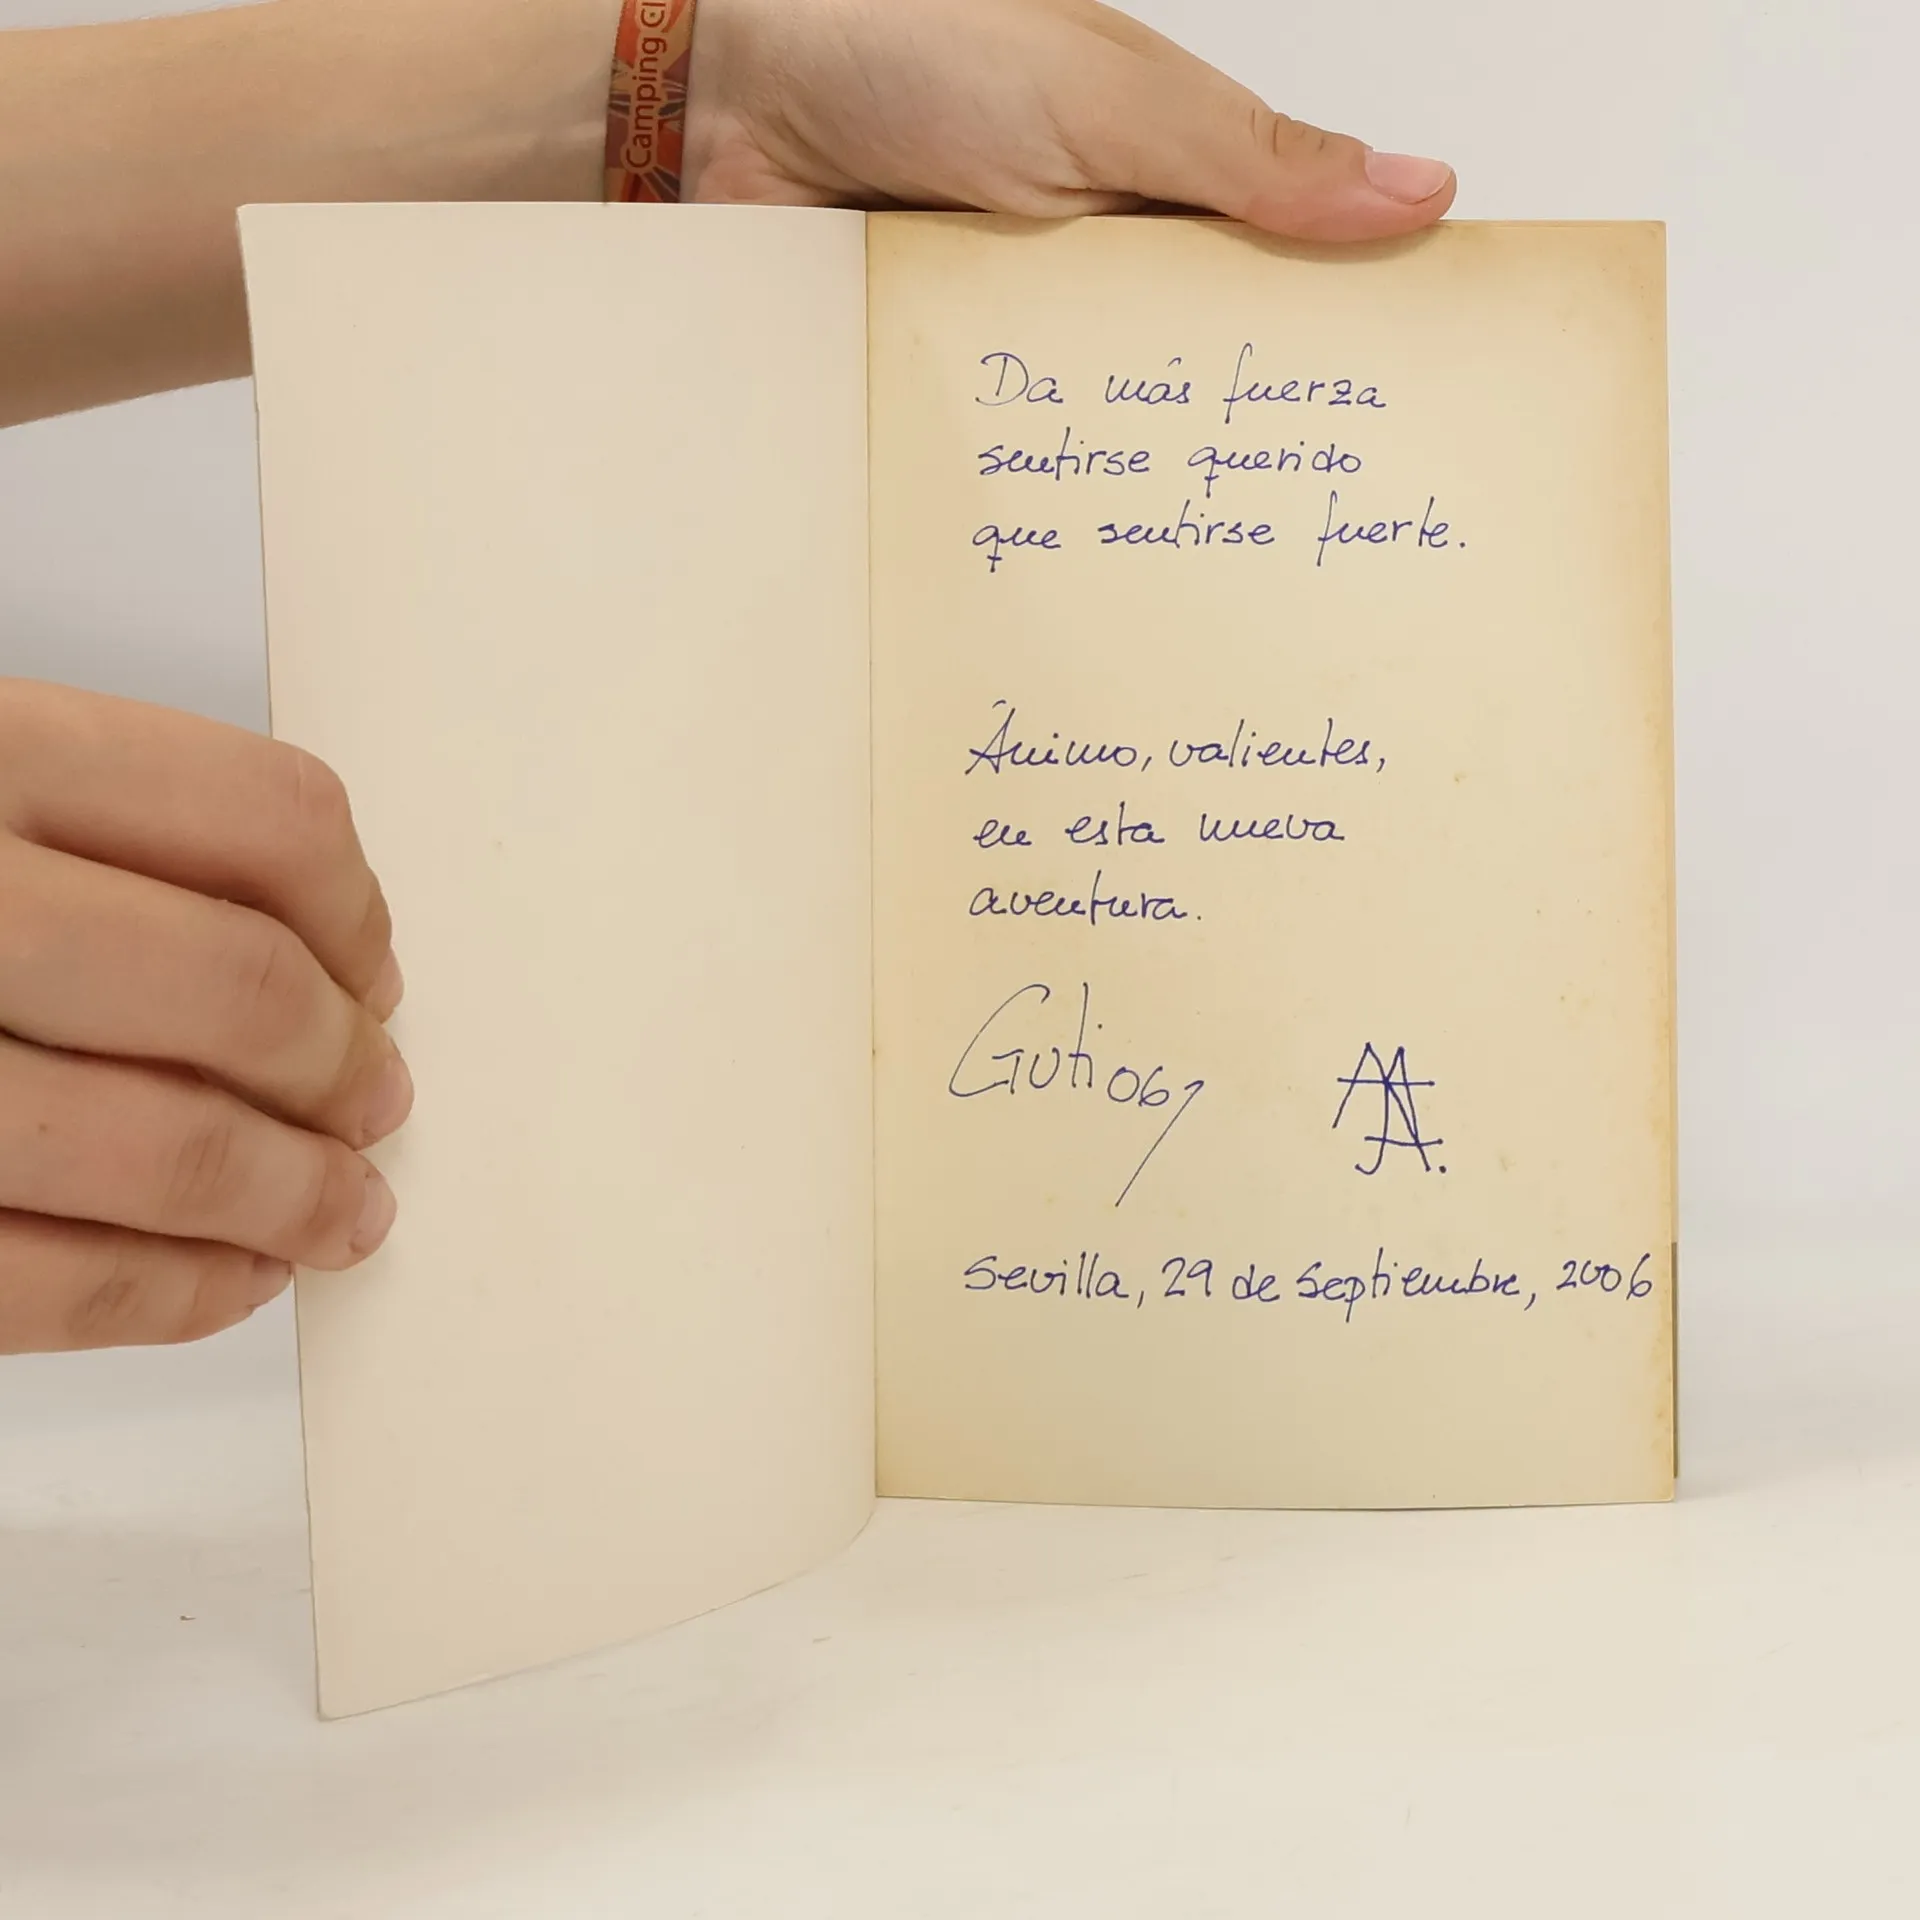 Camping Cl
Da más fuerza
sentirse querido
que sentirse fuerte.
Ánimo, valientes,
en esta nueva
aventura.
Guti 06
Sevilla, 29 de septiembre, 2006